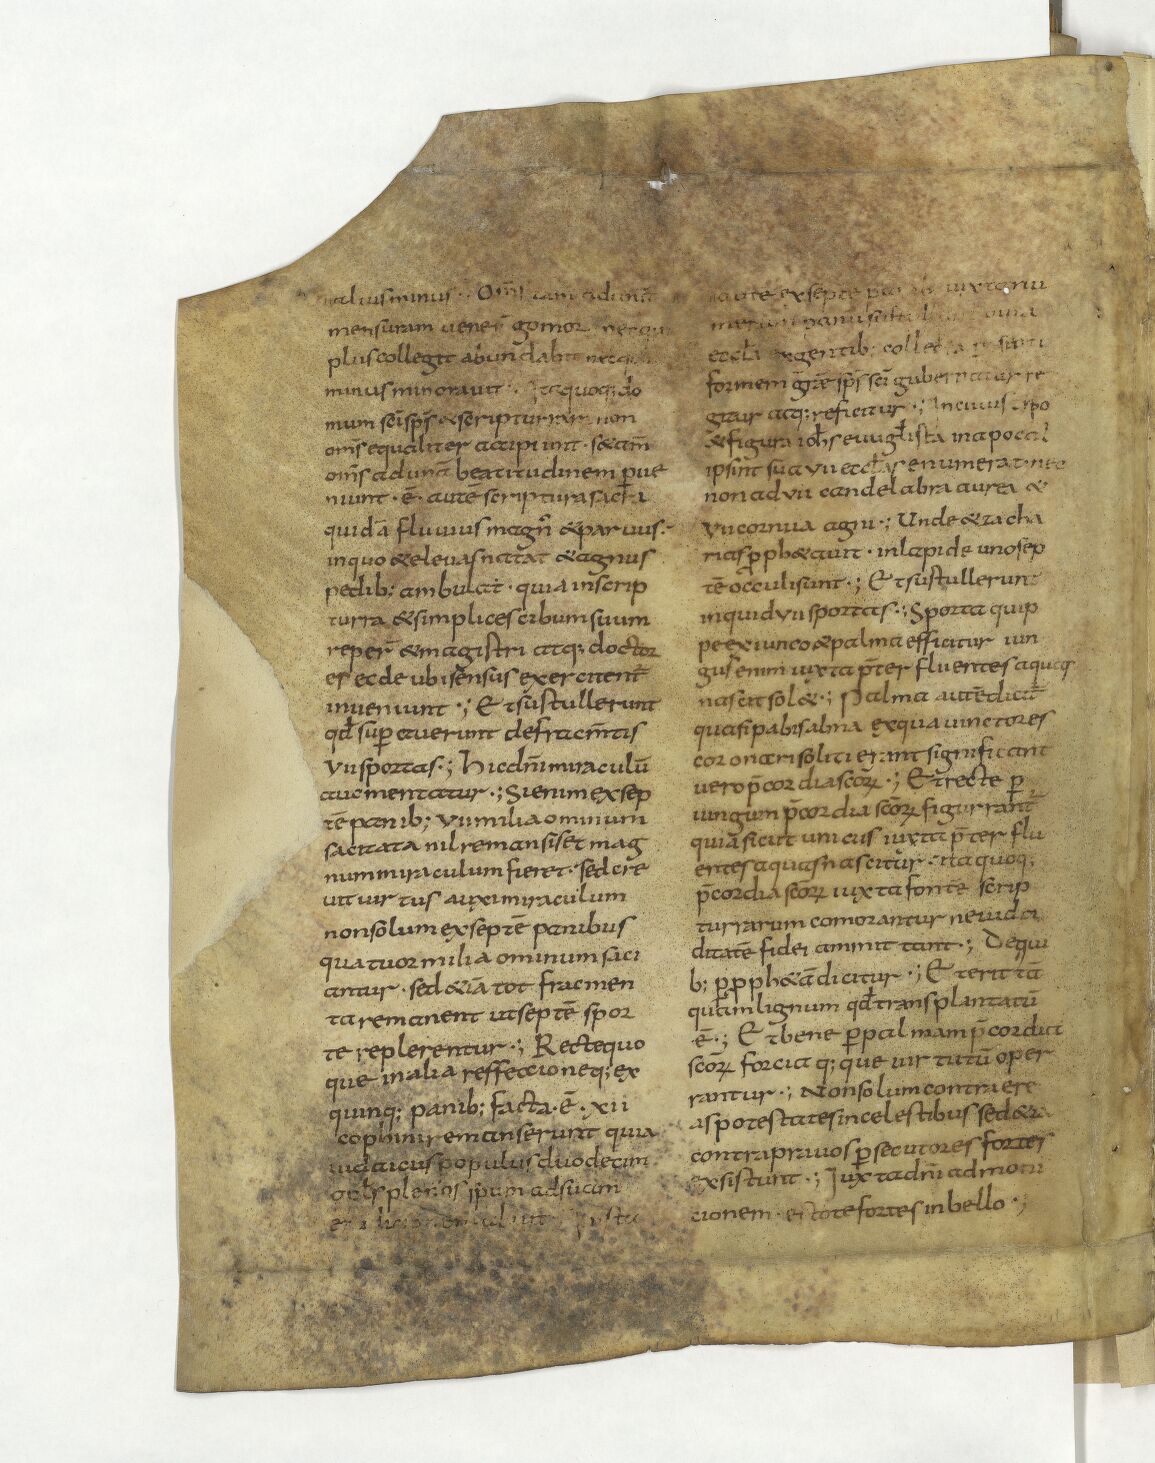 alius minus · Om̅s tam ad una̅
mensuram uener̅ gomor nec qui
plus collegit abundabit nec qui
minus minorauit · Itaq̅uoq; do
num sc̅i sp̅s & scripturrar̅ non
om̅s equaliter accipiunt · s& tam̅
om̅s ad una̅ beatitudinem p̅ue
niunt · e̅ · aute scriptura sacra
quida̅ fluuius magn̅ & paruus ·
in quo & elevas natat & agnus
pedib; ambulat · quia in scrip
turra & simplices cibum suum
reper̅ & magistri atq; doctor
es ecde ubi sensus exercitent̅
inueniunt ·; Et sustullerunt
qd̅ sup̅auerunt de fracm̅tis
VII sportas ·; Hic dn̅i miraculu̅
aucmentatur ·; Si enim ex sep
te̅ panib; VII milia ominum
saciata nil remansiset mag
num miraculum fieret · sed cre
uit uirtus auxit miraculum
non solum ex septe̅ panibus
quatuor milia ominum saci
antur · sed & ia̅ tot fracmen
ta remanent ut septe̅ spor
te replerentur ·; Recte quo
que in alia reffeccioneq; ex
quinq; panib; facta · e̅ · xii
cophini remanserunt quia
iudaicus populus duodecim
plenos ipum adsucim
aute ex septe iuxta nu
meru̅ panu̅
eccl̅a ex gentib; collecta
formem gr̅e sp̅s sc̅i gubernatur re
gitur atq; reficitur ·; In cuius tipo
& figura ioh̅s euuglista in apocal
ipsin̅t sua VII eccl̅as enumerat nec
non ad VII candelabra aurea &
VII cornua agni ·; Unde & zacha
rias p̅ph& aunt · in lapide uno sep
te̅ occuli sunt ·; Et sustullerunt
inquid VII sportas ·; Sporta quip
pe ex iunco & palma efficitur iun
gus enim iuxta p̅ter fluentes aquas
nasci sol& ·; Palma aute̅ dicit̅
quasi pabis abna ex qua uinctores
coronari soliti erant significant
uero p̅cordia sc̅oꝝ ·; Et recte p̅
iungum p̅cordia sc̅oꝝ figurrant̅
quia sicut uncus iuxta p̅ter flu
entes aquas nascitur · ita quoq;
p̅cordia sc̅oꝝ iuxta fonte̅ scrip
turrarum comorantur ne uidi
ditate̅ fidei ammittant ·; De qui
b; p̅ p̅ph&a̅ dicitur ·; Et erit ta̅
qua̅m lignum qd̅ transplantatu̅
· e̅ ·; Et bene p̅ palmam p̅cordia
sc̅oꝝ forcia q; que uirtutu̅ oper
rantur ·; Non solum contra ere
as potestates in celestibus sed &
contra prauos p̅secutores fortes
exsistunt ·; Iuxta dn̅i admoni
cionem · estote fortes in bello ·;